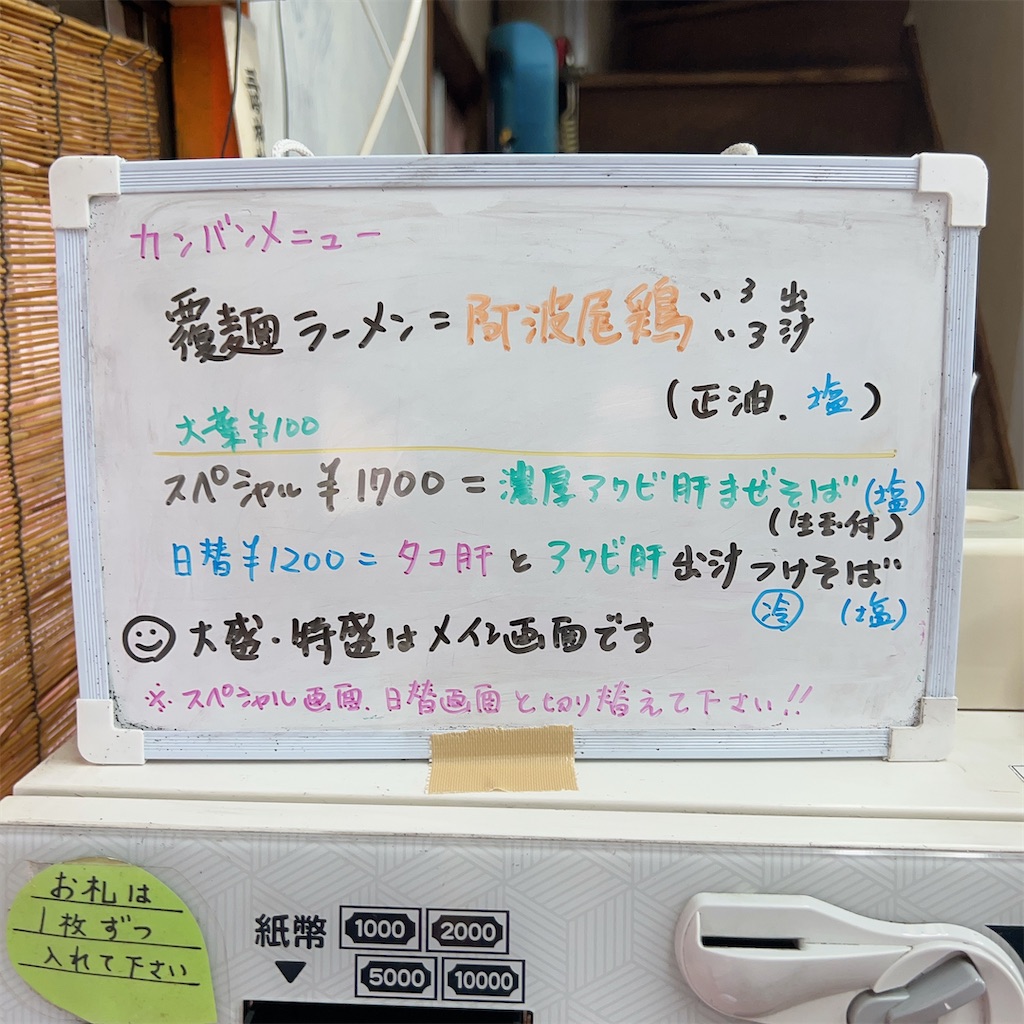 カンバンメニュー
覆麺ラーメン=阿波尾鶏いろいろ出汁
(正油、塩)
大葉¥100
スペシャル¥1700=濃厚アワビ肝まぜそば(塩)
(生玉付)
日替¥1200=タコ肝とアワビ肝出汁つけそば
冷 (塩)
大盛・特盛はメイン画面です
※スペシャル画面、日替画面と切り替えて下さい!!
お札は
1枚ずつ
入れて下さい
紙幣 1000 2000
5000 10000